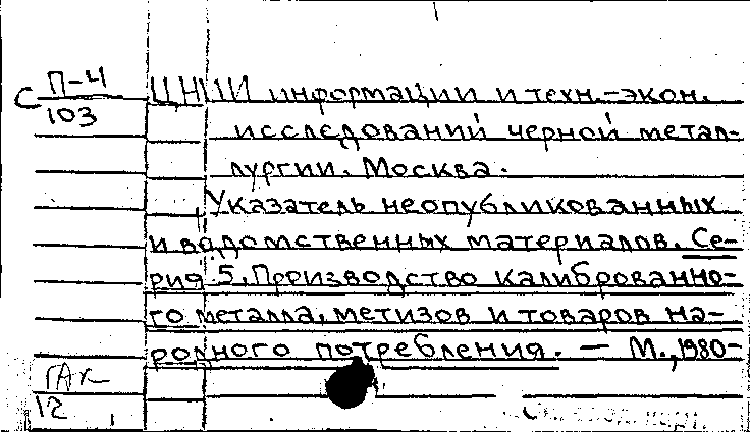 С П-4
103
ЦНИИ информации и техн.-экон.
исследований черной метал-
лургии. Москва.
Указатель неопубликованных
и ведомственных материалов. Се-
рия 5. Производство калиброванно-
го металла, метизов и товаров на-
родного потребления. — М., 1980-
12